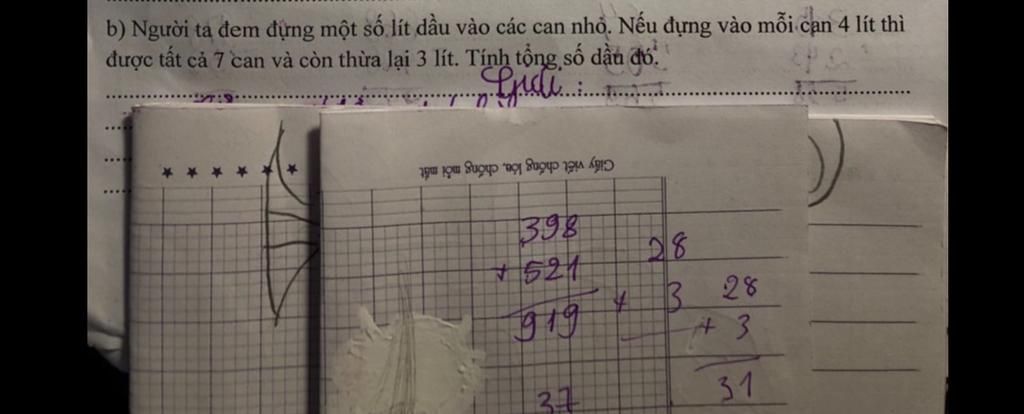 b) Người ta đem đựng một số lít dầu vào các can nhỏ. Nếu đựng vào mỗi can 4 lít thì
được tất cả 7 can và còn thừa lại 3 lít. Tính tổng số dầu đó.
Giải :
Giấy viết chống lóa, chống mỏi mắt
398
+ 521
919
37
28
+ 3
28
+ 3
31